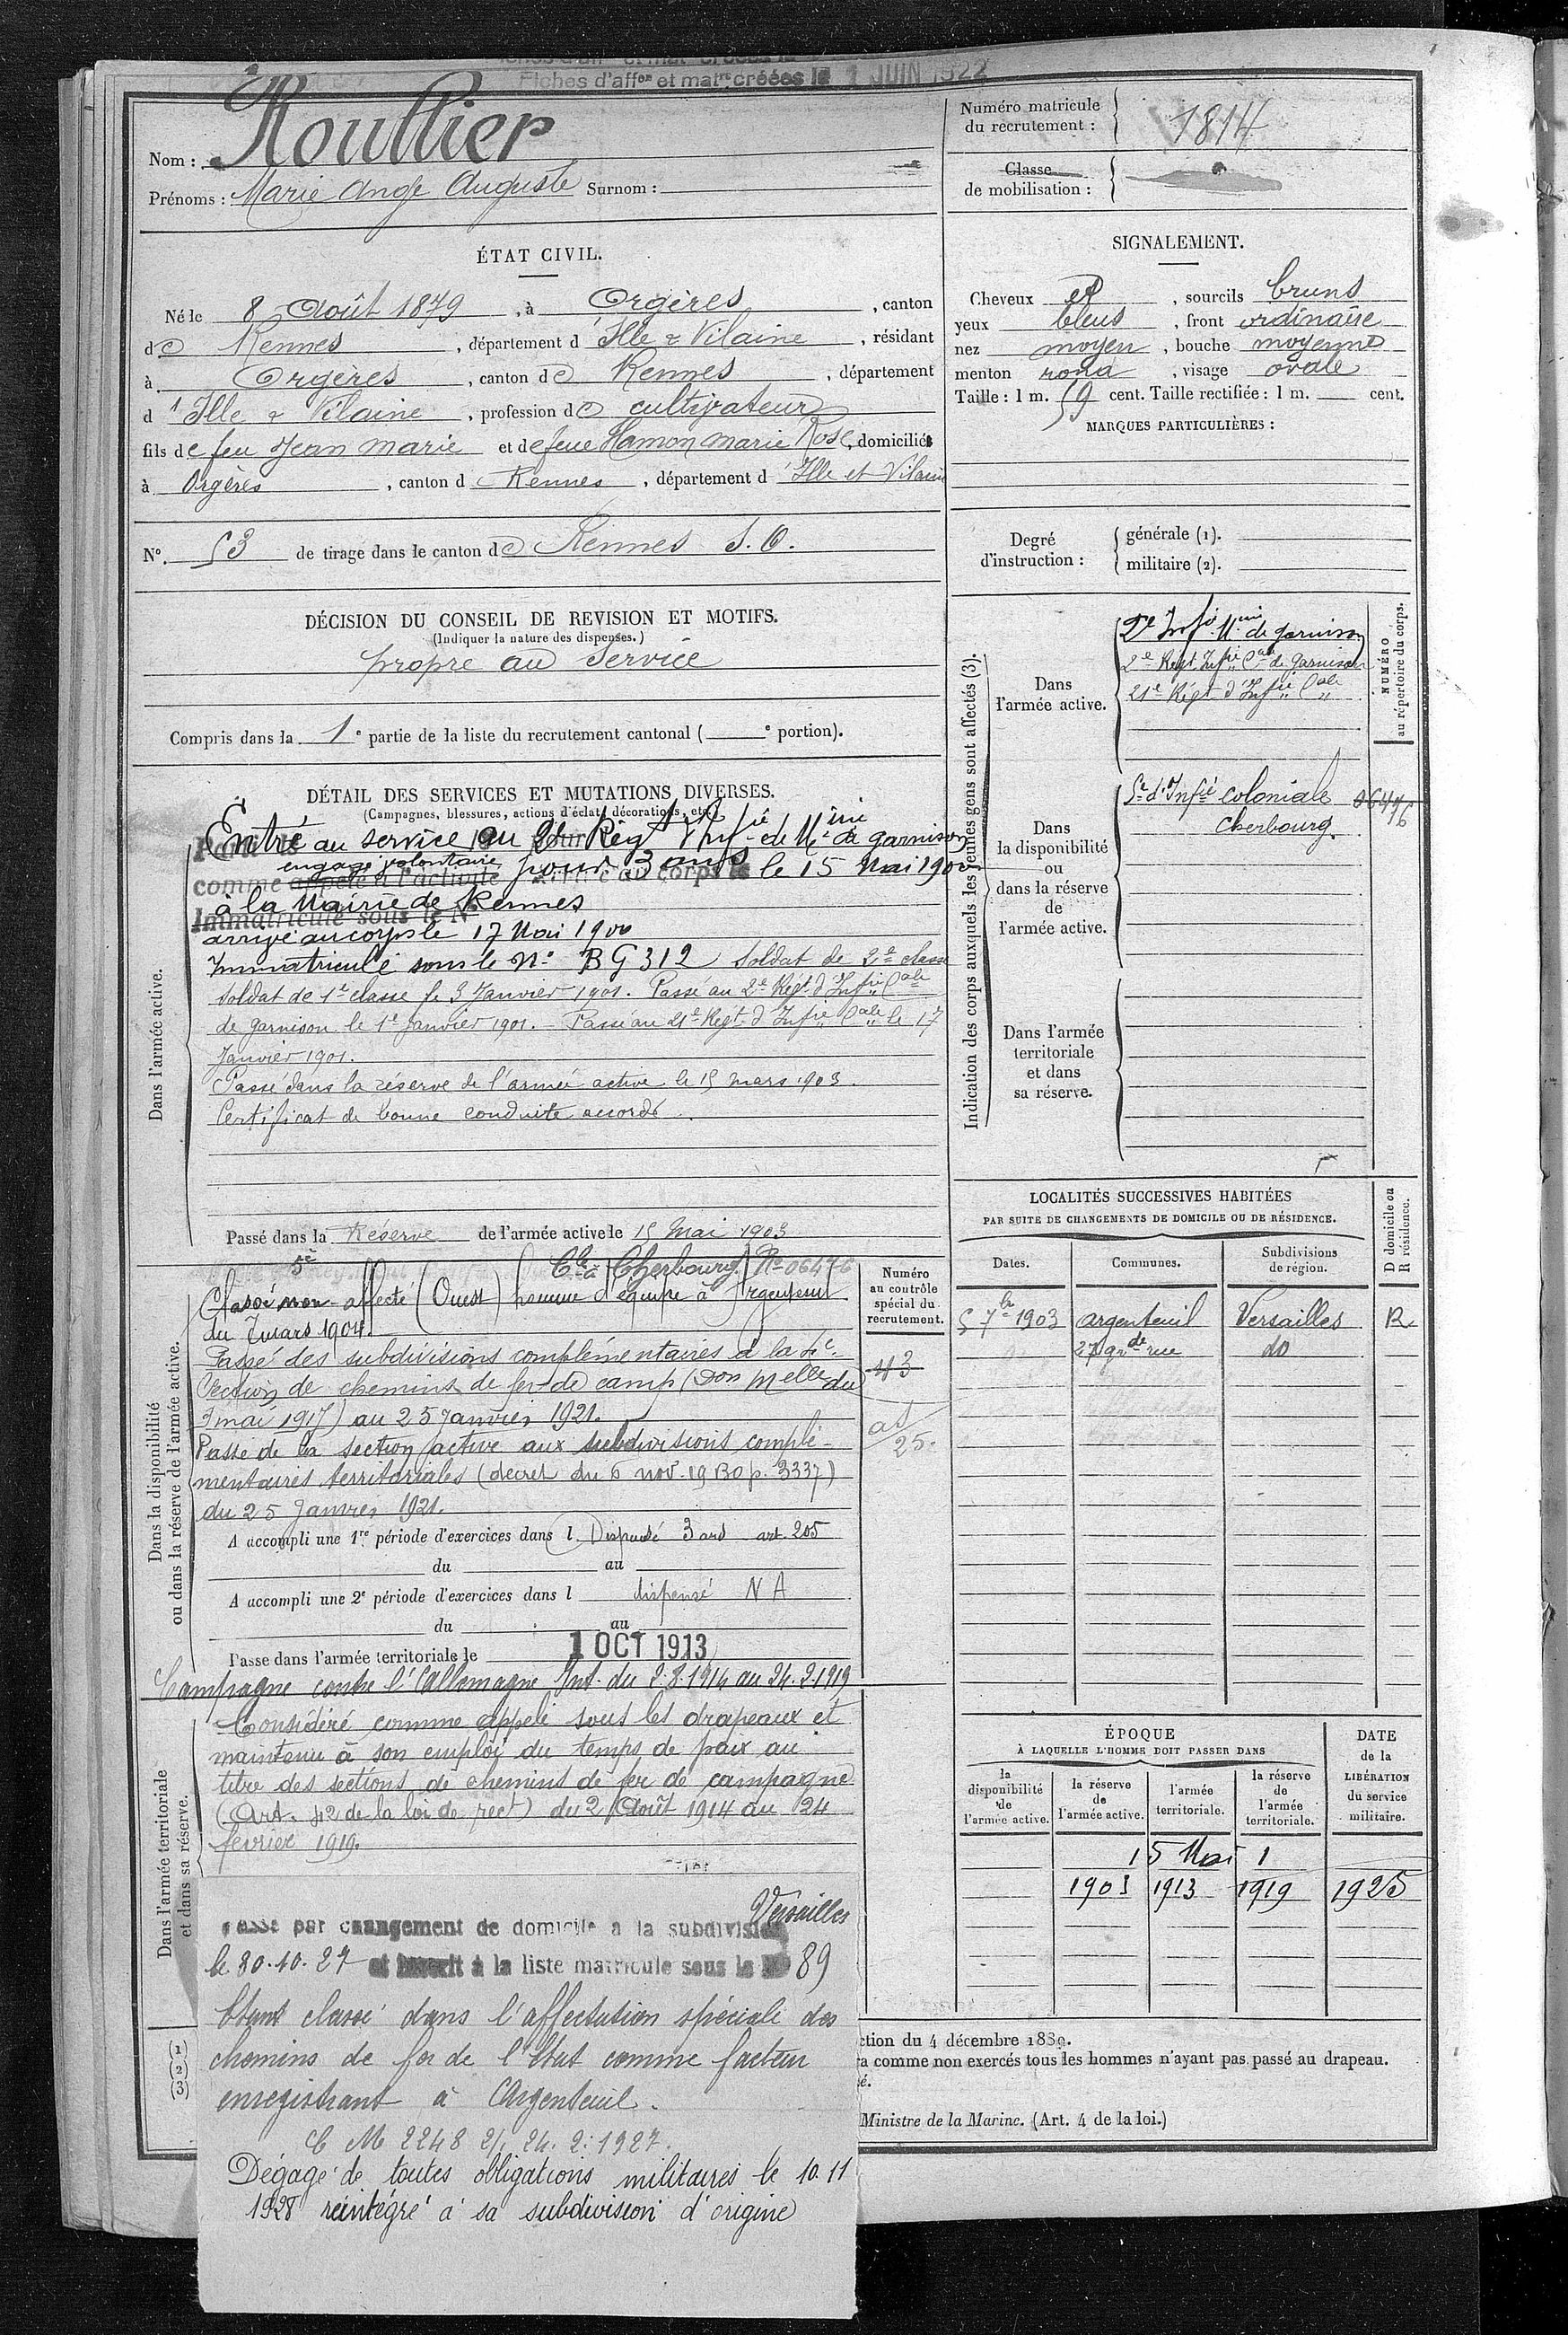 Fiches d'affon et matre créées le 1 JUIN 1922
Nom : Roullier
Prénoms : Marie Ange Auguste Surnom :
Numéro matricule
du recrutement : 1814
Classe
de mobilisation :
ÉTAT CIVIL.
Né le 8 Août 1879, à Orgères, canton
de Rennes, département d'Ille & Vilaine, résidant
à Orgères, canton de Rennes, département
d'Ille & Vilaine, profession de cultivateur
fils de feu Jean Marie et de feue Hamon Marie Rose, domiciliés
à Orgères, canton d Rennes, département d'Ille et Vilaine
N° 53 de tirage dans le canton de Rennes S.O.
SIGNALEMENT.
Cheveux et, sourcils bruns
yeux bleus, front ordinaire
nez moyen, bouche moyenne
menton rond, visage ovale
Taille : 1 m. 59 cent. Taille rectifiée : 1 m. cent.
MARQUES PARTICULIÈRES :
Degré
d'instruction :
générale (1).
militaire (2).
DÉCISION DU CONSEIL DE REVISION ET MOTIFS.
(Indiquer la nature des dispenses.)
propre au Service
Compris dans la 1e partie de la liste du recrutement cantonal ( e portion).
DÉTAIL DES SERVICES ET MUTATIONS DIVERSES.
(Campagnes, blessures, actions d'éclat, décorations, etc.)
Dans l'armée active.
Entré au service au 2e Régt Infie de Mine de garnison
comme appelé à l'activité engagé volontaire pour 3 ans le 15 Mai 1900
à la Mairie de Rennes
Immatriculé sous le N°
arrivé au corps le 17 Mai 1900
Immatriculé sous le N° BG 312 Soldat de 2e classe
Soldat de 1e classe le 3 Janvier 1901. Passé au 2e Régt d'Infie Cale
de garnison le 1e Janvier 1901. Passé au 21e Régt d'Infie Cale le 17
Janvier 1901.
Passé dans la réserve de l'armée active le 15 mars 1903.
Certificat de bonne conduite accordé.
Passé dans la Réserve de l'armée active le 15 Mai 1903
Indication des corps auxquels les jeunes gens sont affectés (3).
Dans
l'armée active.
2e Infie Mine de garnison
2e Régt Infie Cale de garnison
21e Régt d'Infie Cale
NUMÉRO
au répertoire du corps.
Dans
la disponibilité
ou
dans la réserve
de
l'armée active.
5e d'Infie coloniale 06476
Cherbourg.
Dans l'armée
territoriale
et dans
sa réserve.
Dans la disponibilité
ou dans la réserve de l'armée active.
5e Cle à Cherbourg N° 06476
Classé non-affecté (Ouest) homme d'équipe à Argenteuil
du 7 mars 1904.
Passé des subdivisions complémentaires à la 4e
Section de chemins de fer de camp (Don Melle du
3 mai 1917) au 25 Janvier 1921.
Passé de la section active aux subdivisions complé-
mentaires territoriales (décret du 6 nov. 19 BO p. 3337)
du 25 Janvier 1921.
A accompli une 1re période d'exercices dans l Dispensé 3 ans art. 205
du au
A accompli une 2e période d'exercices dans l dispensé N A
du au
Passé dans l'armée territoriale le 1 OCT 1913
Numéro
au contrôle
spécial du
recrutement.
43
25.
LOCALITÉS SUCCESSIVES HABITÉES
PAR SUITE DE CHANGEMENTS DE DOMICILE OU DE RÉSIDENCE.
Dates. Communes. Subdivisions
de région. D domicile ou
R résidence.
5 7bre 1903 argenteuil Versailles R
27 gr de rue do
Campagne contre l'Allemagne Int. du 2.8.1914 au 24.2.1919
Dans l'armée territoriale
et dans sa réserve.
Considéré comme appelé sous les drapeaux et
maintenu à son emploi du temps de paix au
titre des sections de chemins de fer de campagne
(Art. 42 de la loi de rect) du 2 Août 1914 au 24
février 1919.
ÉPOQUE
À LAQUELLE L'HOMME DOIT PASSER DANS
la
disponibilité
de
l'armée active.
la réserve
de
l'armée active.
l'armée
territoriale.
la réserve
de
l'armée
territoriale.
DATE
de la
LIBÉRATION
du service
militaire.
15 Mai 1
1903 1913 1919 1925
Passé par changement de domicile à la subdivision Versailles
le 20.10.27 et inscrit à la liste matricule sous le N° 89
Etant classé dans l'affectation spéciale des
chemins de fer de l'Etat comme facteur
enregistrant à Argenteuil.
C M 2248 2/. 24.2.1927.
Dégagé de toutes obligations militaires le 10.11
1928 réintégré à sa subdivision d'origine
(1)
(2)
(3)
ction du 4 décembre 1889.
ra comme non exercés tous les hommes n'ayant pas passé au drapeau.
sé.
Ministre de la Marine. (Art. 4 de la loi.)